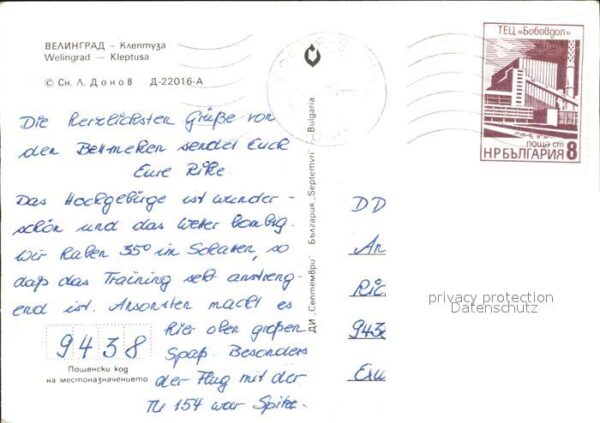 ВЕЛИНГРАД – Клептуза
Welingrad — Kleptusa
© Сн. Л. Донов Д-22016-А
Die herzlichsten Grüße von
den Belmeken sendet Euch
Eure Rike.
Das Hochgebirge ist wunder-
schön und das Wetter bombig.
Wir haben 35° im Schatten, so
daß das Training sehr anstreng-
end ist. Ansonsten macht es
hier oben großen
Spaß. Besonders
der Flug mit der
TU 154 war Spitze.
9438
Пощенски код
на местоназначението
ДИ „Септември" България „Septemvri" Bulgaria
ТЕЦ „Бобовдол"
поща ст
НРБЪЛГАРИЯ 8
DD
An
Ric
943
privacy protection
Datenschutz